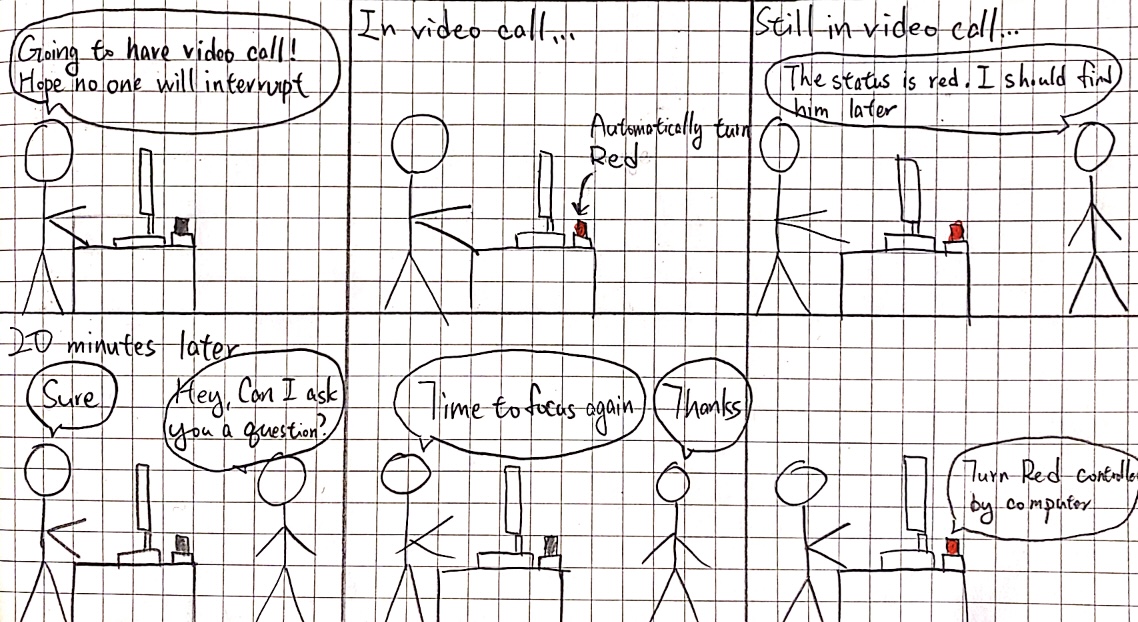 Going to have video call!
Hope no one will interrupt
In video call...
Automatically turn
Red
Still in video call...
The status is red. I should find
him later
20 minutes later
Sure
Hey, Can I ask
you a question?
Time to focus again
Thanks
Turn Red controlle
by computer